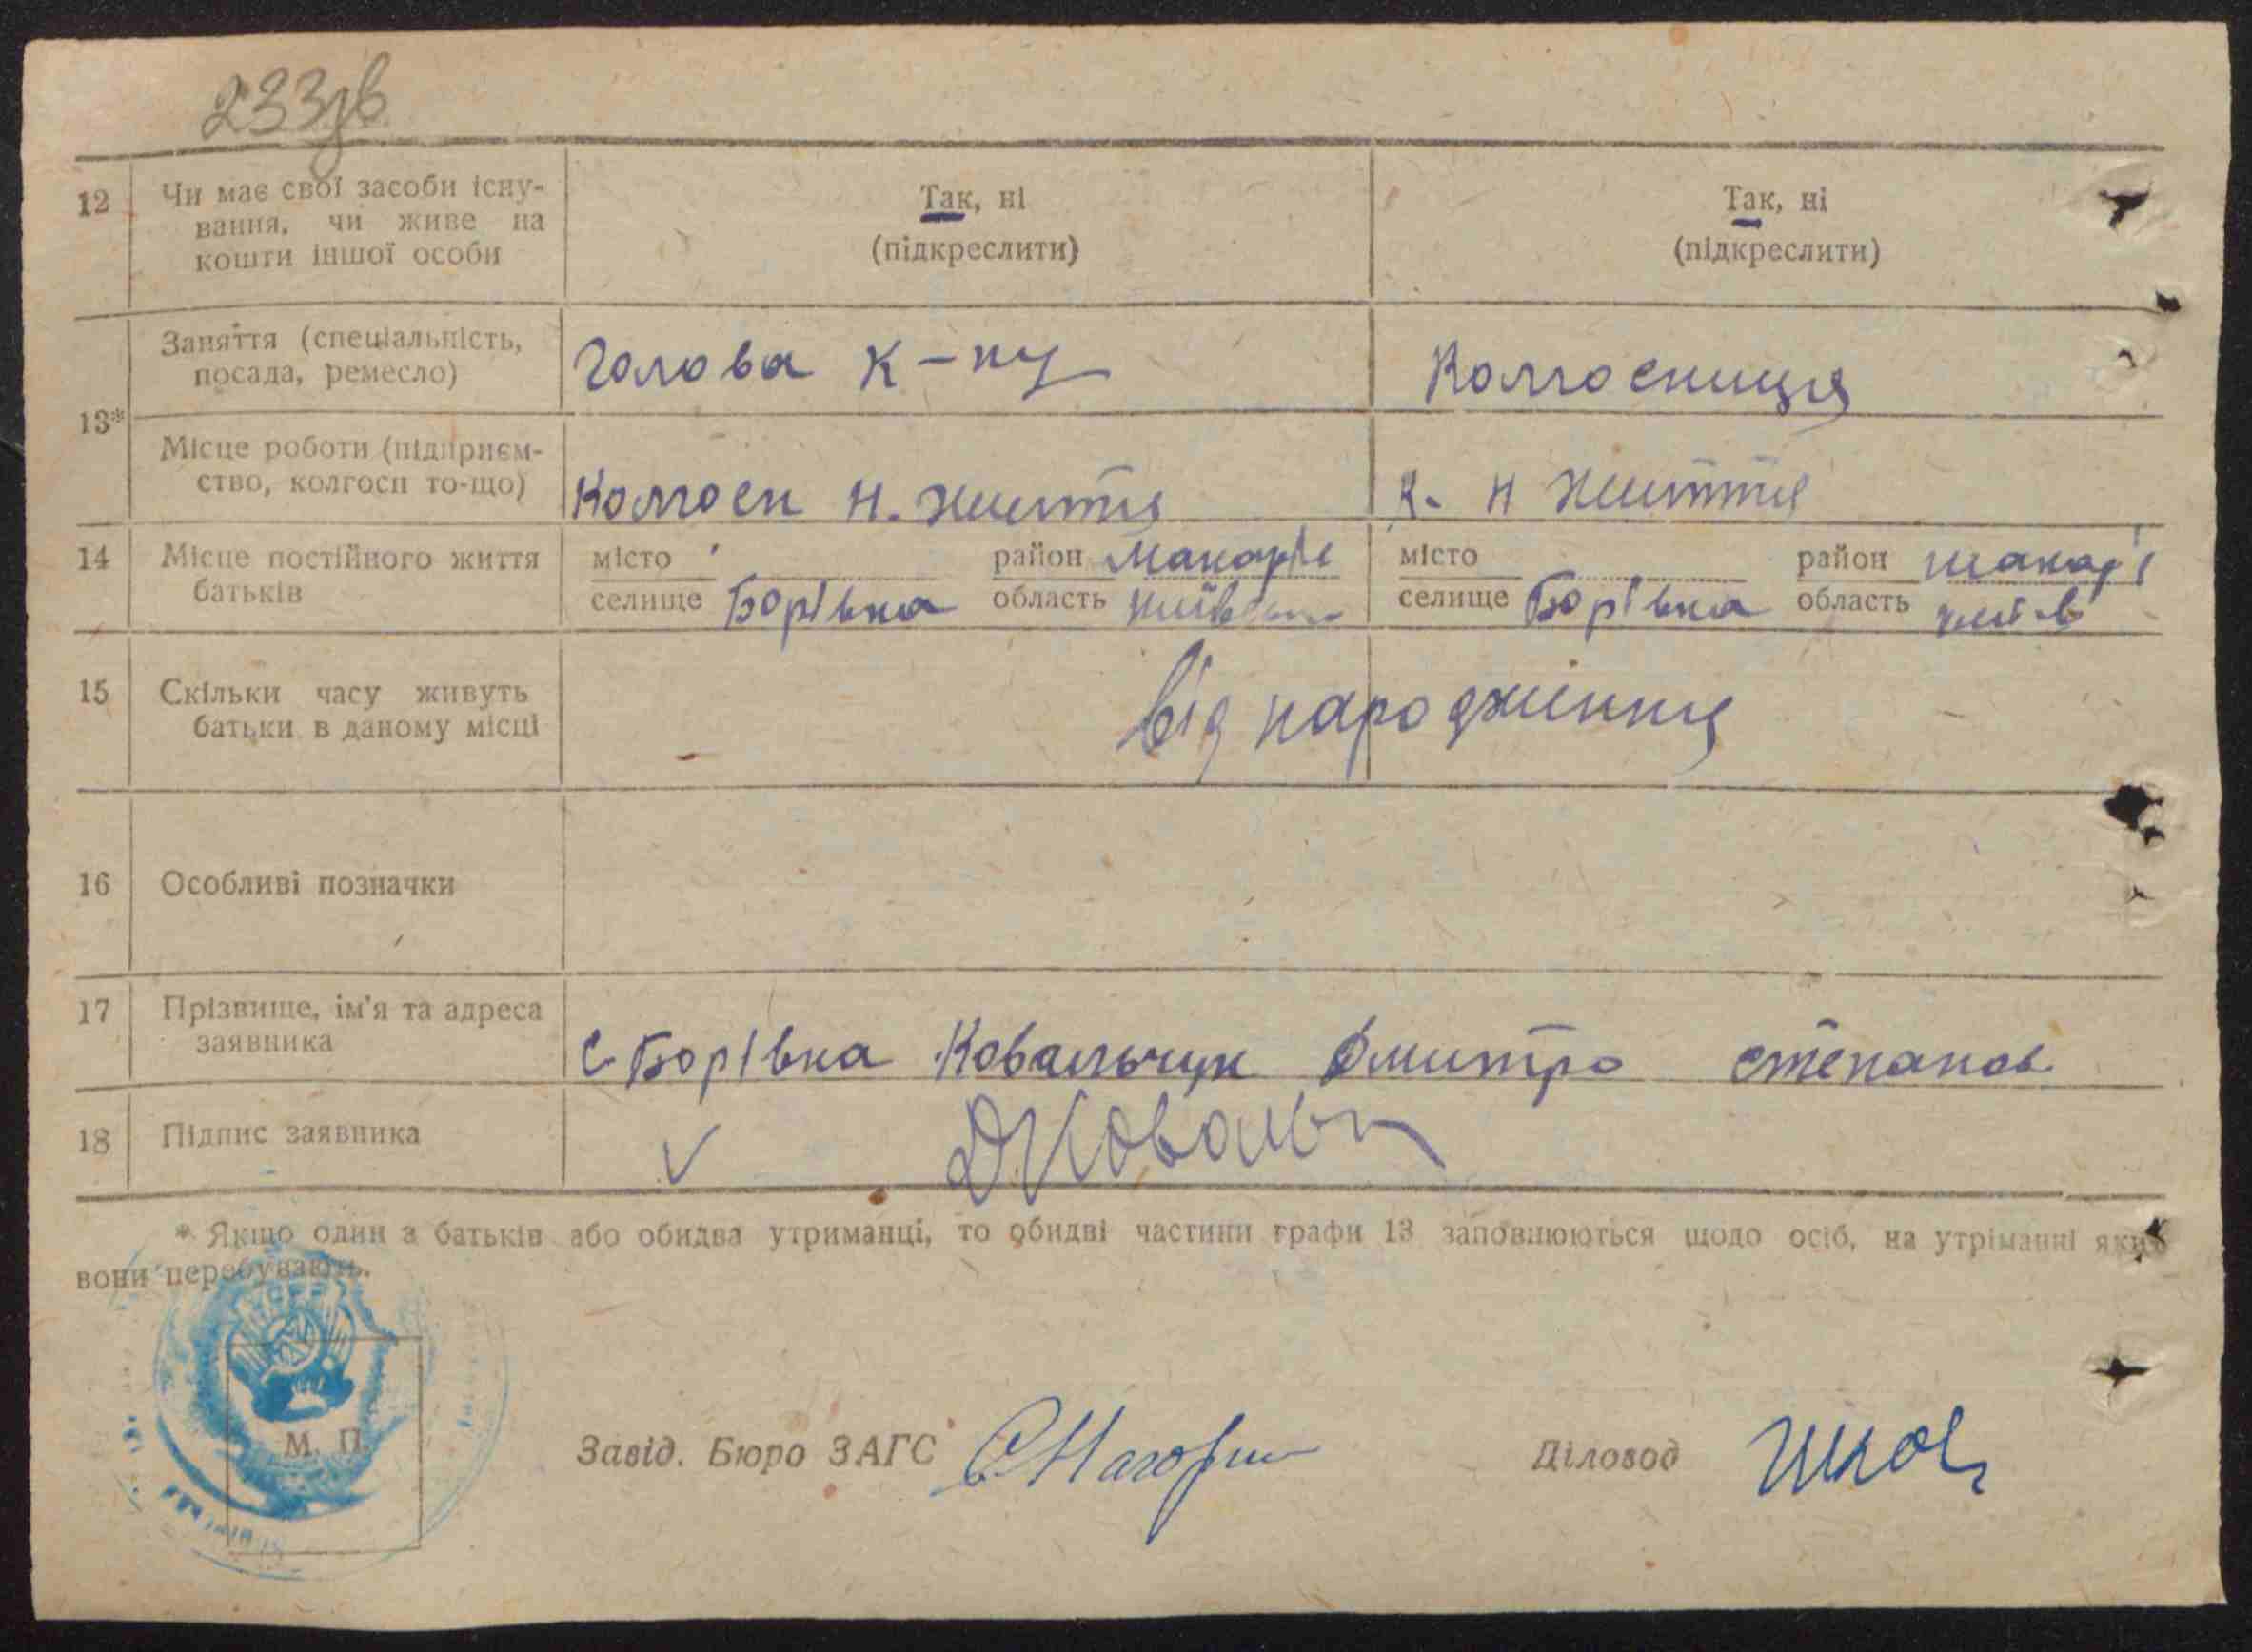 233зв
12 Чи має свої засоби існу-
вання, чи живе на
кошти іншої особи
Так, ні
(підкреслити)
Так, ні
(підкреслити)
13*
Заняття (спеціальність,
посада, ремесло)
Голова к-пу
Колгоспниця
Місце роботи (підприєм-
ство, колгосп то-що)
Колгосп Н. життя
К. Н життя
14 Місце постійного життя
батьків
місто район Макарів
селище Борівка область Київськ
місто район Макарі
селище Борівка область Київ
15 Скільки часу живуть
батьки в даному місці
від народження
16 Особливі позначки
17 Прізвище, ім'я та адреса
заявника
С Борівка Ковальчук Дмитро Степанов.
18 Підпис заявника
V ДКовальч
* Якщо один з батьків або обидва утриманці, то обидві частини графи 13 заповнюються щодо осіб, на утріманні яких
вони перебувають.
УСРР
М. П.
Завід. Бюро ЗАГС
Діловод